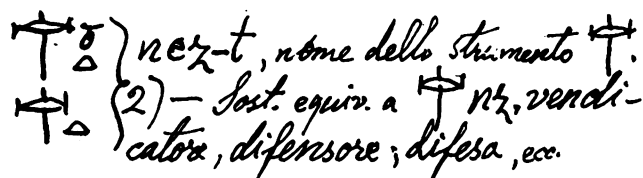 nez-t, nome dello strumento.
2) — Sost. equiv. a nz, vendi-
catore, difensore; difesa, ecc.